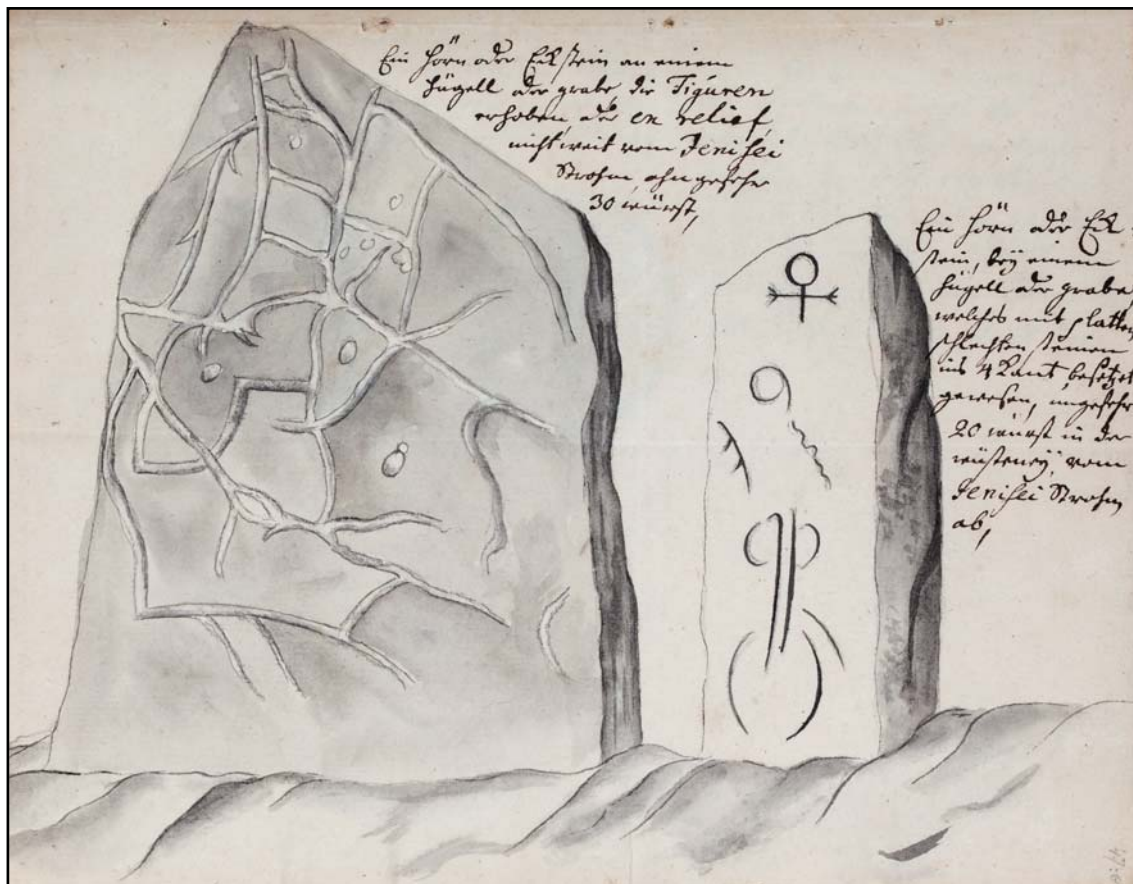 Ein hörn oder Eckstein an einem
hügell oder grabe die Figuren
erhoben oder en relief,
nicht weit vom Jenisei
Strohm, ohngefehr
30 würst,
Ein hörn oder Eck-
stein, bey einem
hügell oder grabe,
welches mit platten,
schlechten steinen
ins 4 Kant, besetzt
gewesen, ungefehr
20 würst in der
wüsteneÿ, vom
Jenisei Strohm
ab,